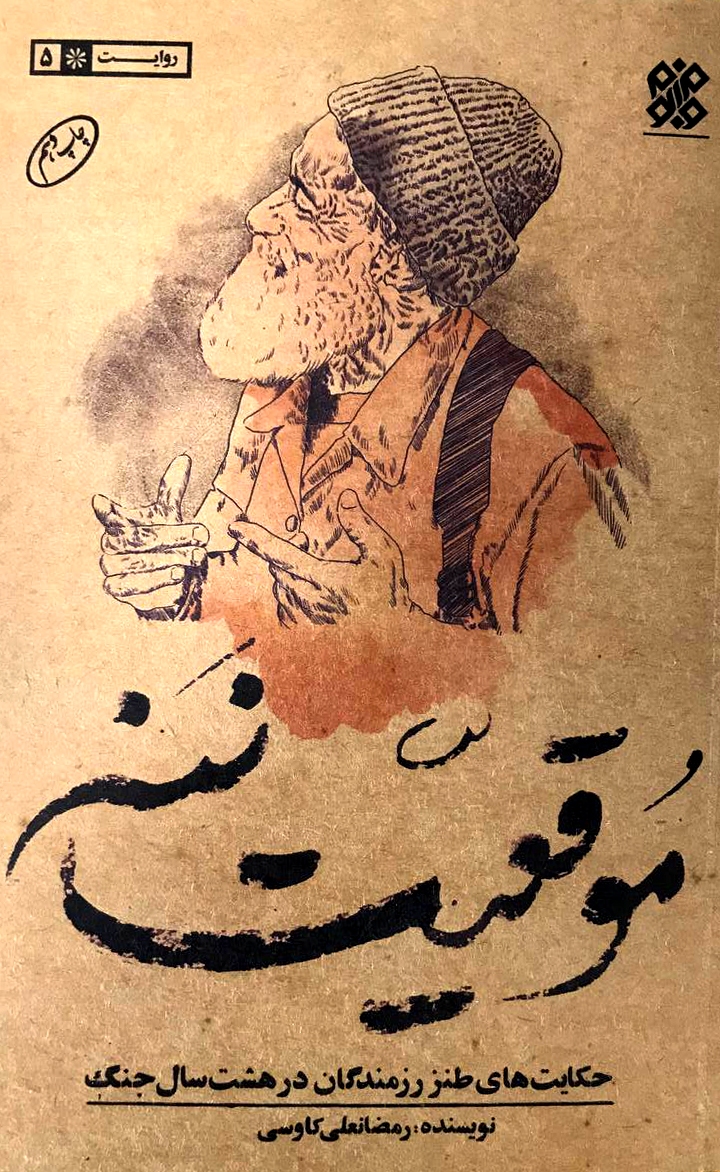 روایت ۵
چاپ دهم
مُوقعیّت نَنه
حکایت‌های طنز رزمندگان در هشت سال جنگ
نویسنده: رمضانعلی کاوسی